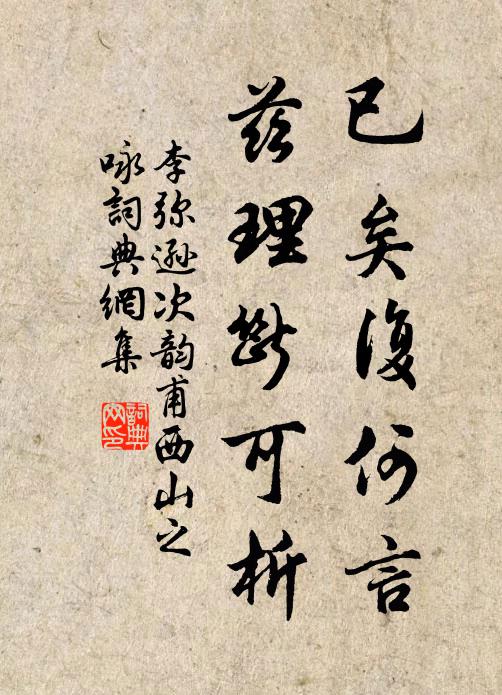 已矣復何言
茲理斷可析
李弥遜次韵甫西山之
咏詞典網集
詞典网印